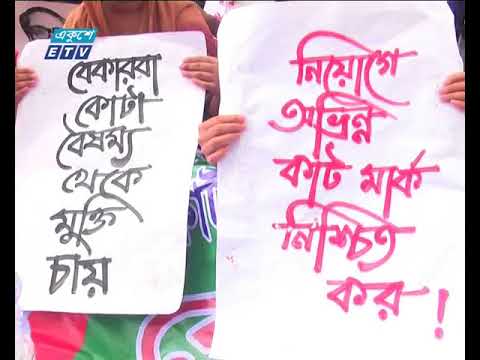 একুশে
ETV
বেকাররা
কোটা
বৈষম্য
থেকে
মুক্তি
চায়
নিয়োগে
অভিন্ন
কাট মার্ক
নিশ্চিত
কর !